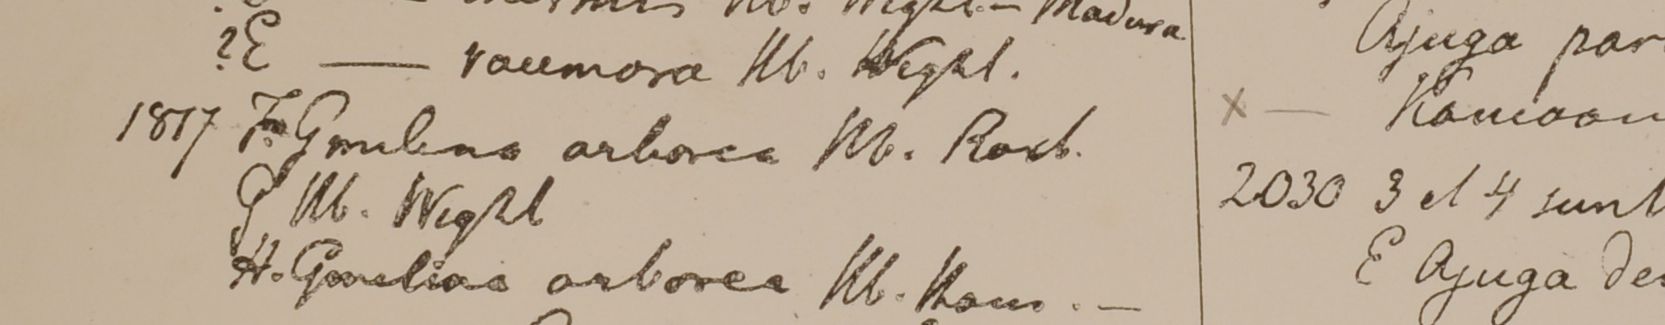 Hb. Wight.- Madura
?E — racemosa Hb. Wight.
1817 F. Gmelina arborea Hb. Roxb.
G Hb. Wight
H. Gmelina arborea Hb. Ham. —
Ajuga par
x — Kamaon
2030 3 et 4 sunt
E Ajuga des